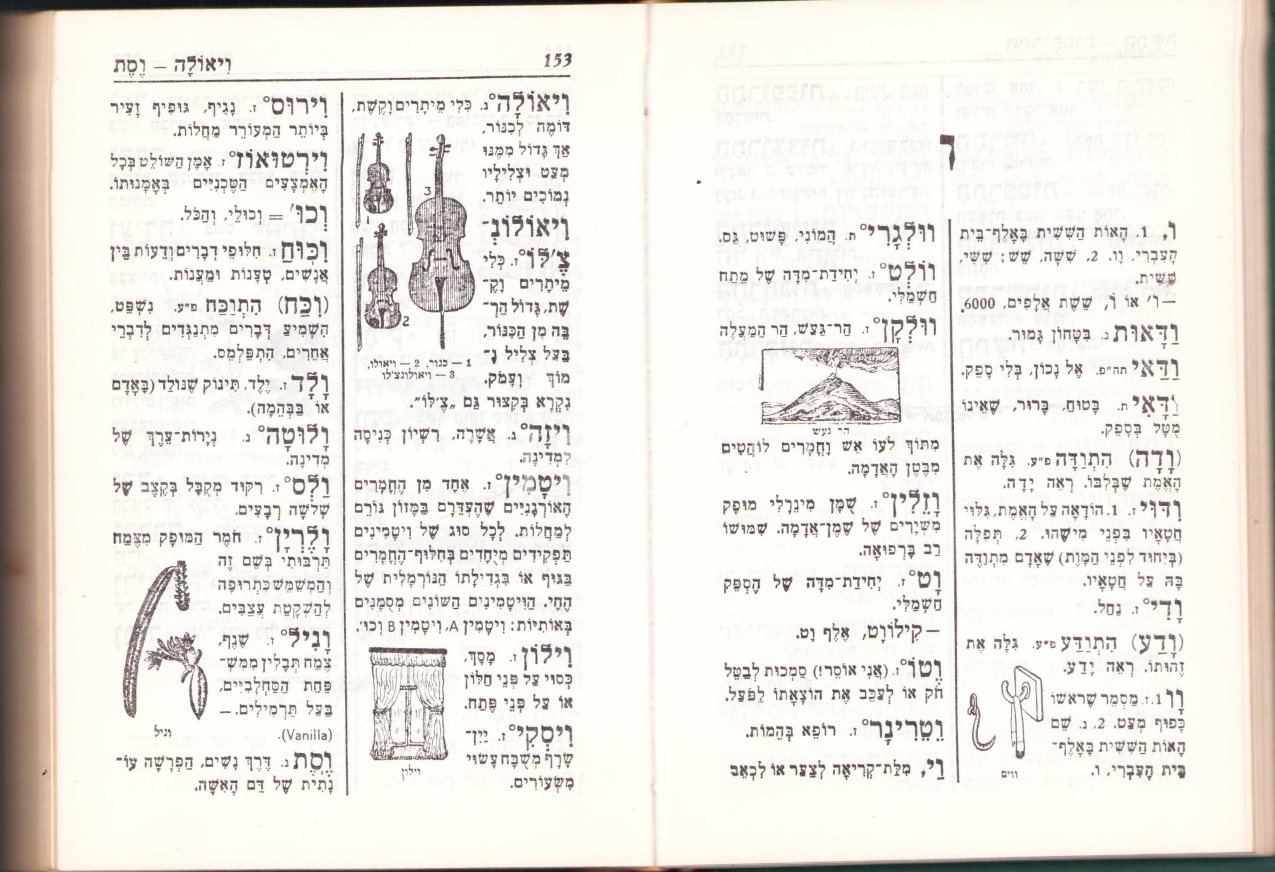 ו
ו, 1. הָאוֹת הַשִּׁשִּׁית בָּאָלֶף־בֵּית
הָעִבְרִי, וָו. 2. שִׁשָּׁה, שֵׁשׁ; שִׁשִּׁי,
שִׁשִּׁית.
—ו' אוֹ וֹ, שֵׁשֶׁת אֲלָפִים, 6000.
וַדָּאוּת נ. בִּטָּחוֹן גָּמוּר.
וַדַּאי תה"פ. אֶל נָכוֹן, בְּלִי סָפֵק.
וַדָּאִי ת. בָּטוּחַ, בָּרוּר, שֶׁאֵינוֹ
מֻטָּל בְּסָפֵק.
(וָדָה) הִתְוַדָּה פ"ע. גִּלָּה אֶת
הָאֱמֶת שֶׁבְּלִבּוֹ. רְאֵה יָדָה.
וִדּוּי ז. 1. הוֹדָאָה עַל הָאֱמֶת, גִּלּוּי
חֲטָאָיו בִּפְנֵי מִישֶׁהוּ. 2. תְּפִלָּה
(בְּיִחוּד לִפְנֵי הַמָּוֶת) שֶׁאָדָם מִתְוַדֶּה
בָּהּ עַל חֲטָאָיו.
וָדִי° ז. נַחַל.
(וָדַע) הִתְוַדַּע פ"ע. גִּלָּה אֶת
זֶהוּתוֹ. רְאֵה יָדַע.
וָו 1. ז. מַסְמֵר שֶׁרֹאשׁוֹ
כָּפוּף מְעַט. 2. נ. שֵׁם
הָאוֹת הַשִּׁשִּׁית בָּאָלֶף־
בֵּית הָעִבְרִי, ו.
ווים
ווּלְגָּרִי° ת. הֲמוֹנִי, פָּשׁוּט, גַּס.
ווֹלְט° ז. יְחִידַת־מִדָּה שֶׁל מֶתַח
חַשְׁמַלִּי.
ווּלְקָן° ז. הַר־גַּעַשׁ, הַר הַמַּעֲלֶה
הר געש
מִתּוֹךְ לֹעוֹ אֵשׁ וַחֳמָרִים לוֹהֲטִים
מִבֶּטֶן הָאֲדָמָה.
וָזֶלִין° ז. שֻׁמָּן מִינֵרָלִי מוּפָק
מִשְּׁיָרִים שֶׁל שֶׁמֶן־אֲדָמָה. שִׁמּוּשׁוֹ
רַב בָּרְפוּאָה.
וָט° ז. יְחִידַת־מִדָּה שֶׁל הֶסְפֵּק
חַשְׁמַלִּי.
—קִילוֹוָט, אֶלֶף וָט.
וֵטוֹ° ז. (אֲנִי אוֹסֵר!) סַמְכוּת לְבַטֵּל
חֹק אוֹ לְעַכֵּב אֶת הוֹצָאָתוֹ לַפֹּעַל.
וֵטֵרִינָר° ז. רוֹפֵא בְּהֵמוֹת.
וַי, מִלַּת־קְרִיאָה לְצַעַר אוֹ לִכְאֵב
153
וִיאוֹלָה — וֶסֶת
וִיאוֹלָה° נ. כְּלִי מֵיתָרִים וָקֶשֶׁת,
דּוֹמֶה לְכִנּוֹר,
אַךְ גָּדוֹל מִמֶּנּוּ
מְעַט וּצְלִילָיו
נְמוֹכִים יוֹתֵר.
וִיאוֹלוֹנְ־
צֶ'לוֹ° ז. כְּלִי
מֵיתָרִים וָקֶ־
שֶׁת, גָּדוֹל הַרְ־
בֵּה מִן הַכִּנּוֹר,
בַּעַל צְלִיל נָ־
מוֹךְ וְעָמֹק.
1 2 3
1 — כנור, 2 — ויאולו,
3 — ויאולונצ'לו
נִקְרָא בְּקִצּוּר גַּם „צֶ'לוֹ".
וִיזָה° נ. אַשְׁרָה, רִשְׁיוֹן כְּנִיסָה
לִמְדִינָה.
וִיטָמִין° ז. אֶחָד מִן הֶחֳמָרִים
הָאוֹרְגָּנִיִּים שֶׁהֶעְדֵּרָם בַּמָּזוֹן גּוֹרֵם
לְמַחֲלוֹת. לְכָל סוּג שֶׁל וִיטָמִינִים
תַּפְקִידִים מְיֻחָדִים בְּחִלּוּף־הַחֳמָרִים
בַּגּוּף אוֹ בִּגְדִילָתוֹ הַנּוֹרְמָלִית שֶׁל
הַחַי. הַוִּיטָמִינִים הַשּׁוֹנִים מְסֻמָּנִים
בְּאוֹתִיּוֹת: וִיטָמִין A, וִיטָמִין B וְכוּ'.
וִילוֹן ז. מָסָךְ,
כִּסּוּי עַל פְּנֵי חַלּוֹן
אוֹ עַל פְּנֵי פֶּתַח.
וִיסְקִי° ז. יֵין־
שָׂרָף מְשֻׁבָּח עָשׂוּי
מִשְּׂעוֹרִים.
וילון
וִירוּס° ז. נָגִיף, גּוּפִיף זָעִיר
בְּיוֹתֵר הַמְּעוֹרֵר מַחֲלוֹת.
וִירְטוּאוֹז° ז. אָמָּן הַשּׁוֹלֵט בְּכָל
הָאֶמְצָעִים הַטֶּכְנִיִּים בְּאָמָּנוּתוֹ.
וְכוּ' = וְכוּלֵּי, וְהַכֹּל.
וִכּוּחַ ז. חִלּוּפֵי דְבָרִים וְדֵעוֹת בֵּין
אֲנָשִׁים, טְעָנוֹת וּמַעֲנוֹת.
(וִכַּח) הִתְוַכַּח פ"ע. נִשְׁפַּט,
הִשְׁמִיעַ דְּבָרִים מִתְנַגְּדִים לְדִבְרֵי
אֲחֵרִים, הִתְפַּלְמֵס.
וָלָד ז. יֶלֶד, תִּינוֹק שֶׁנּוֹלַד (בָּאָדָם
אוֹ בַּבְּהֵמָה).
וָלוּטָה° נ. נְיָרוֹת־עֵרֶךְ שֶׁל
מְדִינָה.
וַלְס° ז. רִקּוּד מְקֻבָּל בְּקֶצֶב שֶׁל
שְׁלֹשָׁה רְבָעִים.
וָלֶרְיָן° ז. חֹמֶר הַמּוּפָק מִצֶּמַח
תַּרְבּוּתִי בְּשֵׁם זֶה
וְהַמְשַׁמֵּשׁ כִּתְרוּפָה
לְהַשְׁקָטַת עֲצַבִּים.
וָנִיל° ז. שְׁנָף,
צֶמַח תַּבְלִין מִמִּשְׁ־
פַּחַת הַסַּחְלָבִיִּים,
בַּעַל תַּרְמִילִים. —
(Vanilla).
וניל
וֶסֶת נ. דֶּרֶךְ נָשִׁים, הַפְרָשָׁה עוֹ־
נָתִית שֶׁל דַּם הָאִשָּׁה.